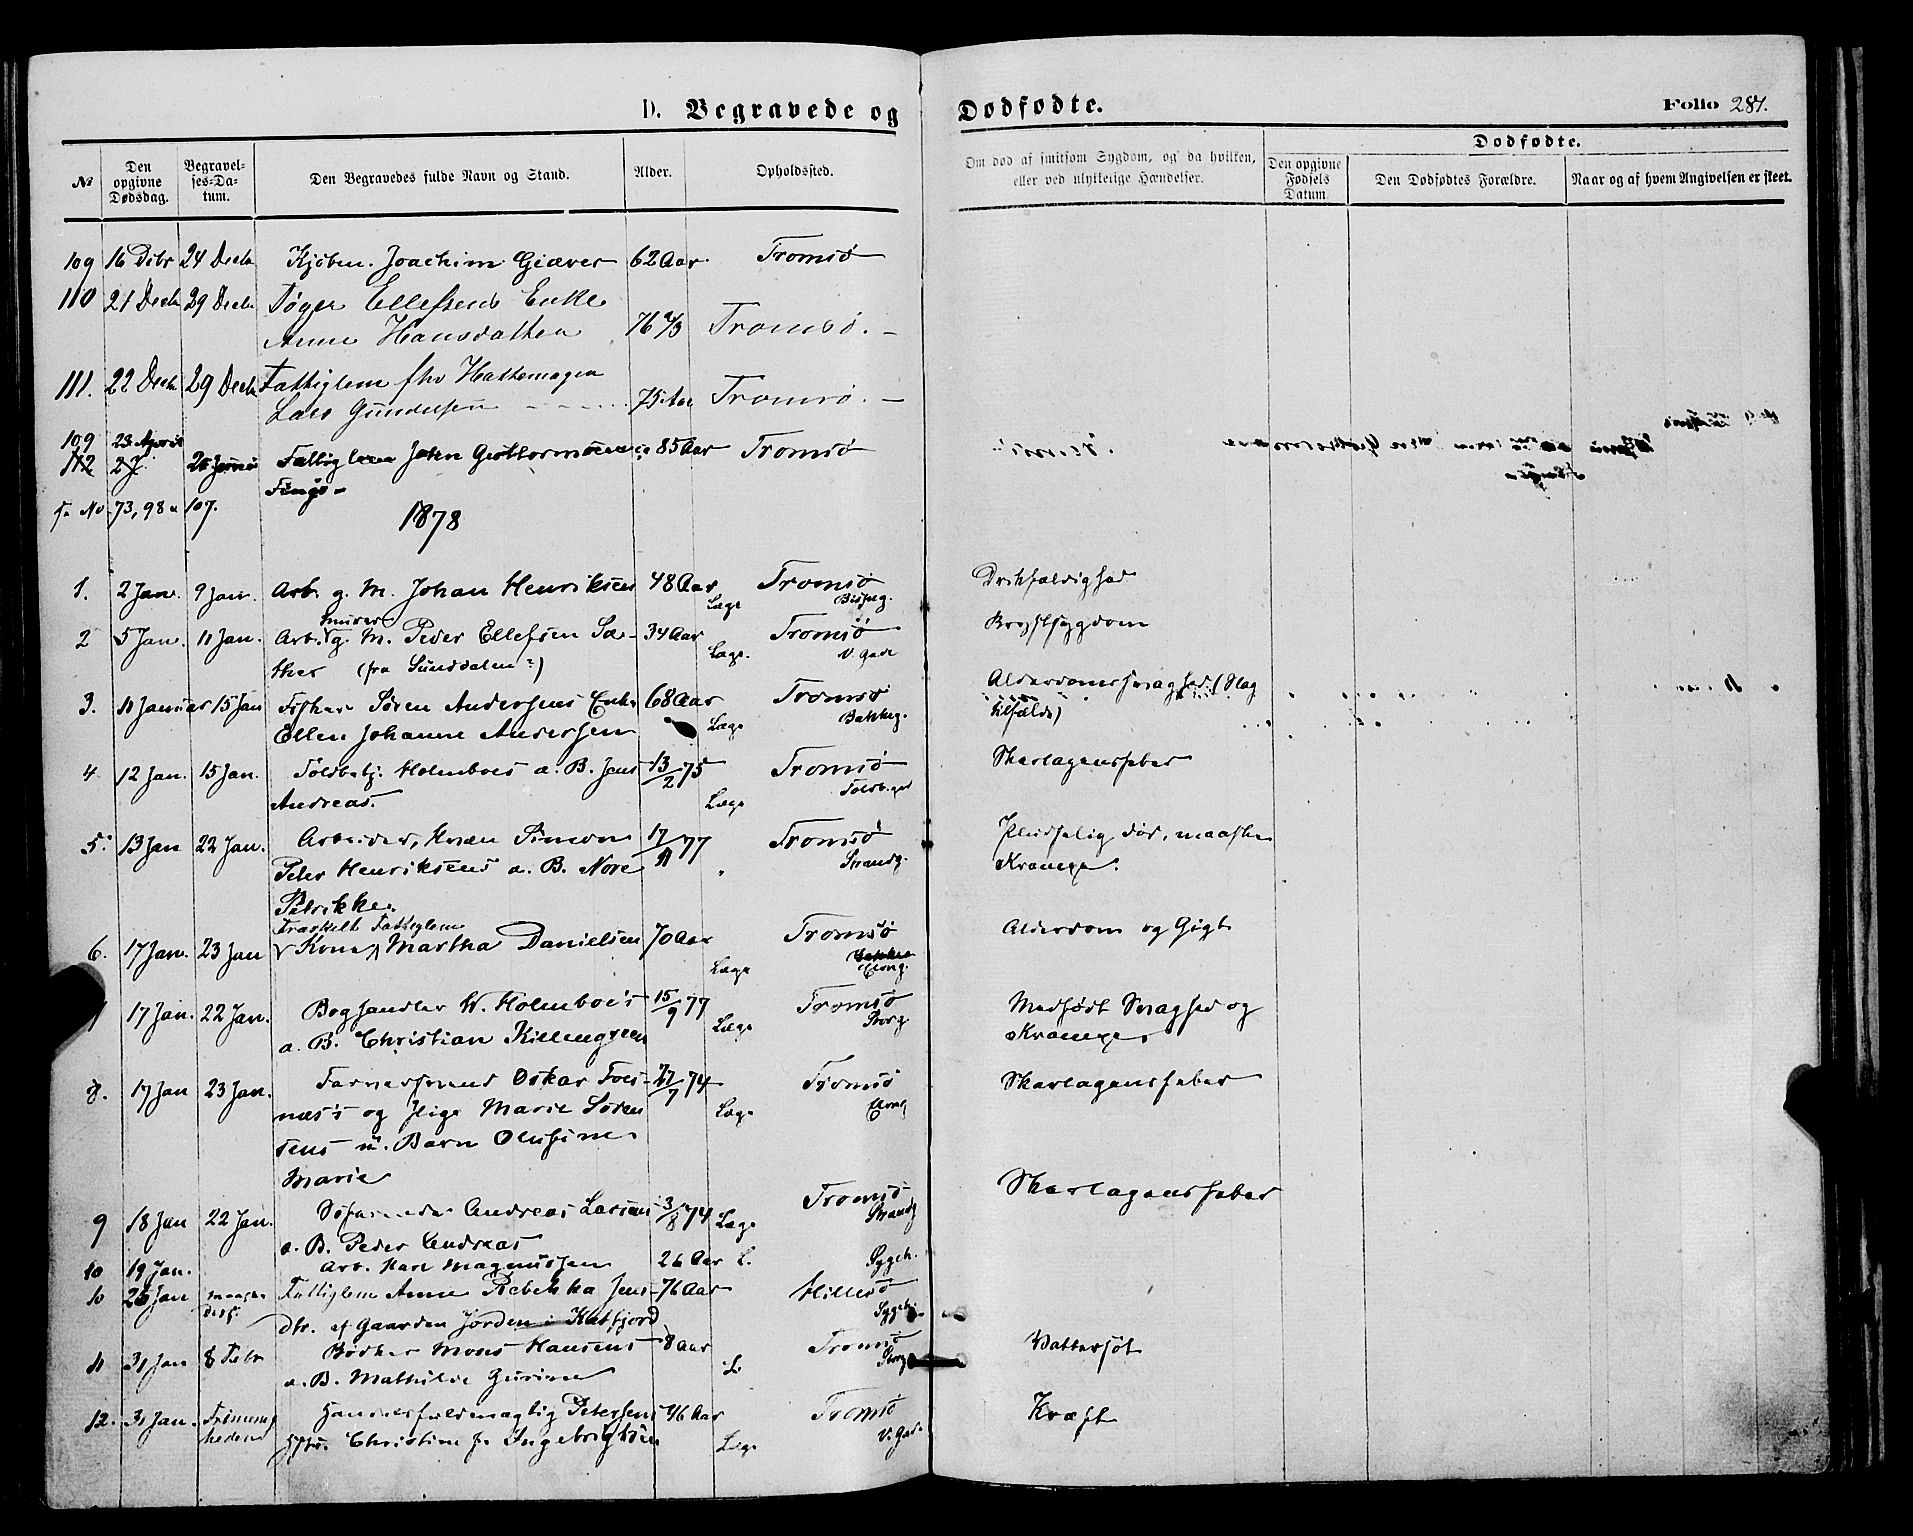 D. Begravede og Dødfødte.
Folio 281.
№
Den opgivne Dødsdag.
Begravelses-Datum.
Den Begravedes fulde Navn og Stand.
Alder.
Opholdssted.
Om død af smitsom Sygdom, og da hvilken, eller ved ulykkelige Hændelser.
Dødfødte.
Den opgivne Fødsels Datum
Den Dødfødtes Forældre.
Naar og af hvem Angivelsen er skeet.
109 16 Dcbr 24 Decbr Kjøbm. Joachim Giæver 62 Aar Tromsø
110 21 Decbr 29 Decbr Tøger Ellefsens Enke
Anne Hansdatter 76 Tromsø. –
111. 22 Decbr 29 Decbr Fattiglem fhv Hattemager
Lars Gundersen 75 Aar Tromsø. –
109 23 April
112 Fattiglem John Guttormsen 85 Aar Tromsø
F. No 73, 98 107.
1878
1. 2 Jan. 9 Jan. Arb. g. M. Johan Henriksen 48 Aar Læge Tromsø Drikfældighed
murer
2 5 Jan. 11 Jan. Arb. g. M. Peder Ellefsen Sæ- 34 Aar Læge. Tromsø V. Gade Brystsygdom
ther (fra Sunddalen?)
3. 11 Januar 15 Jan Fisker Søren Andersens Enke 68 Aar Læge Tromsø Bakkeg. Alderdomssvaghed (Slag
Ellen Johanne Andersen tilfælde)
4 12 Jan. 15 Jan. Toldbetj. Holmboes æ. B. Jens 13/2 75 Læge Tromsø Toldb.gd Skarlagensfeber
Andreas.
5. 13 Jan 22 Jan. Arbeider, Kvæn Simon 17/11 77 Tromsø Strandg. Pludselig død, maaske
Peter Henriksens æ. B. Nore Krampe.
Petrikke.
Fraskilt Fattiglem
6. 17 Jan. 23 Jan Kone Martha Danielsen 70 Aar Læge Tromsø Elveg. Alderdom og Gigt
7 17 Jan. 22 Jan. Boghandler W. Holmboe's 15/9 77 Læge Tromsø Storg. Medfødt Svaghed og
æ. B. Christian Killengreen Krampe.
8. 17 Jan 23 Jan. Garversvend Oskar Fos- 27/7 74 Læge Tromsø Elveg Skarlagensfeber
næs's og Pige Marie Søren
sens u. Barn Olufine
Marie
9 18 Jan 22 Jan. Søfarende Andreas Larsens 3/8 74 Læge Tromsø Strandg Skarlagensfeber
æ. B. Peder Andreas
10 19 Jan. Arb. Karl Magnussen 26 Aar L. Sygeh.
10 25 Jan Fattiglem Anne Rebekka Jens- 76 Aar Hillesø Sygeh.
dtr. af Gaarden Jorden i Katfjord
11 31 Jan 8 Febr Bødker Mons Hansens 8 Aar L. Tromsø Storg Vattersot
æ. B. Mathilde Gurine
12. 31 Jan. Handelsfuldmægtig Petersens 46 Aar Læge Tromsø V. Gade Kræft
Hstr. Christine f. Ingebrigtsen